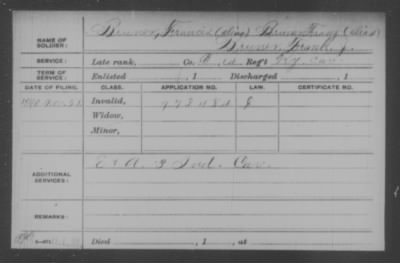 NAME OF SOLDIER: Bruner, Francis (alias) Bruner, Franz (alias)
Bruner, Frank, J.
SERVICE: Late rank, Co. Reg't Ky. Cav.
TERM OF SERVICE: Enlisted , 1 Discharged , 1
DATE OF FILING. CLASS. APPLICATION NO. LAW. CERTIFICATE NO.
Invalid,
Widow,
Minor,
ADDITIONAL SERVICES: E & A. Ind. Cav.
REMARKS:
Died , 1 , at